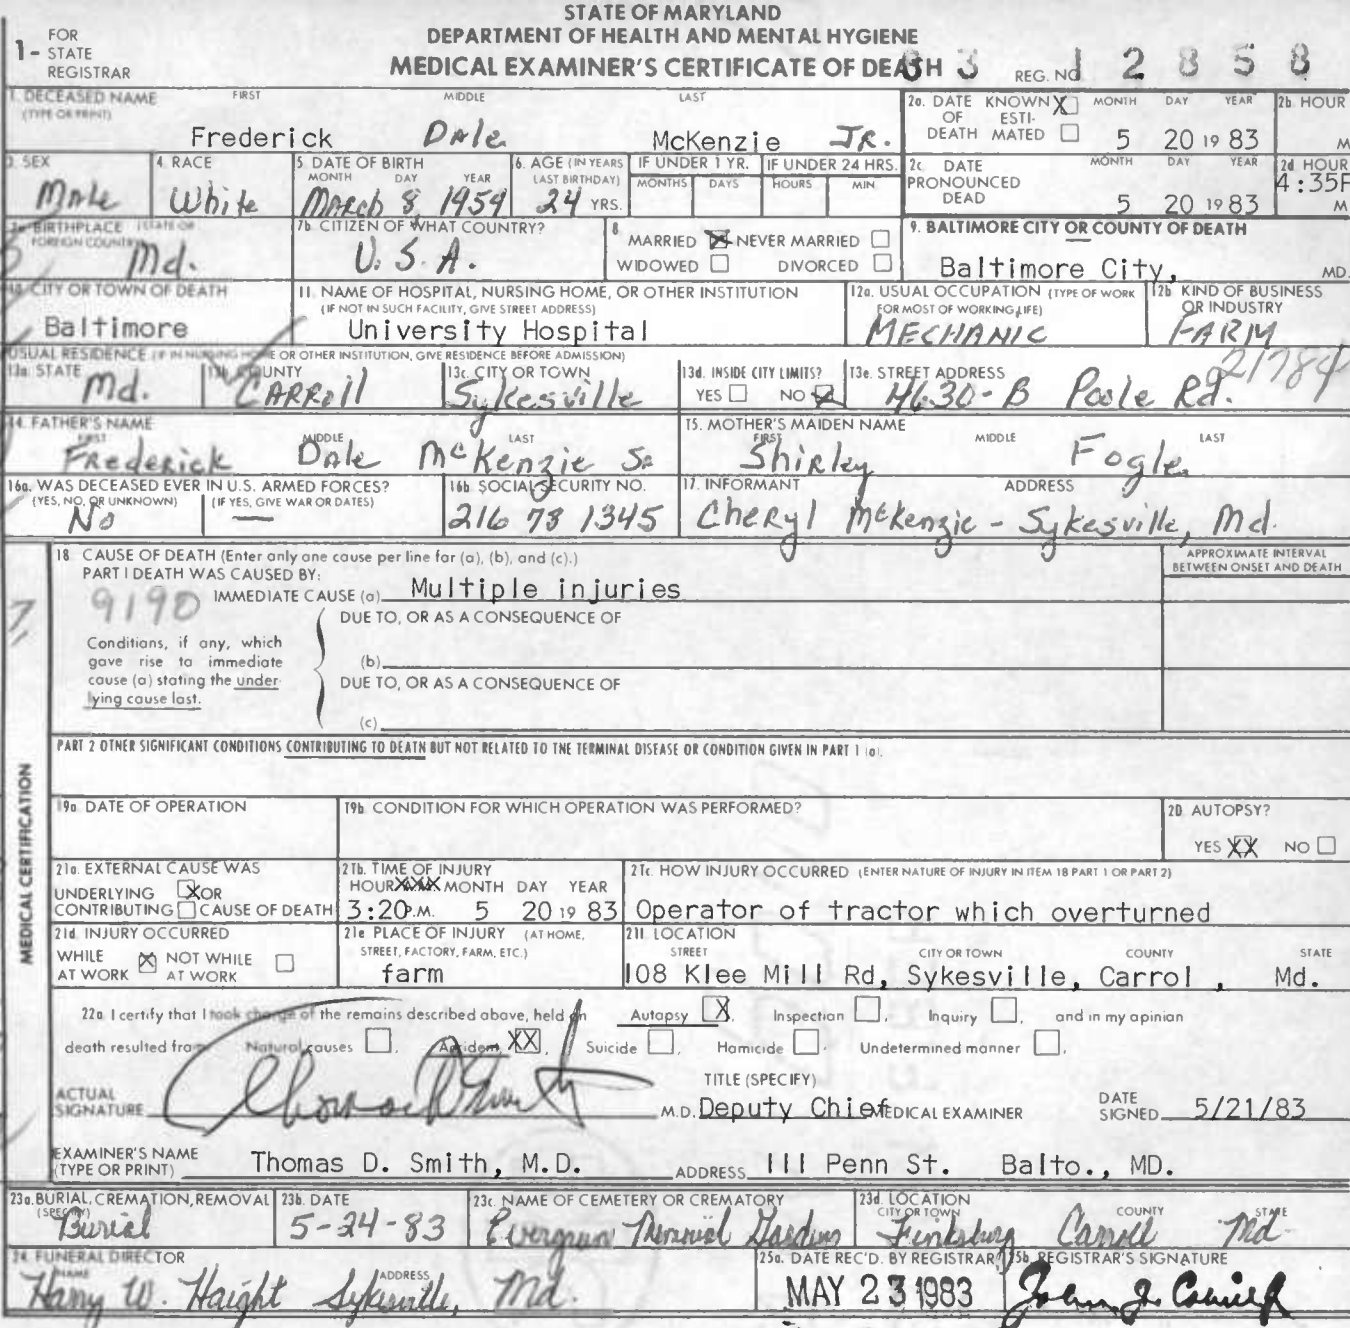 STATE OF MARYLAND
DEPARTMENT OF HEALTH AND MENTAL HYGIENE
MEDICAL EXAMINER'S CERTIFICATE OF DEATH
1- FOR STATE REGISTRAR
83 12858
REG. NO
1. DECEASED NAME (TYPE OR PRINT) FIRST MIDDLE LAST
Frederick Dale McKenzie JR.
2a. DATE OF DEATH KNOWN X ESTIMATED MONTH DAY YEAR
5 20 1983
2b. HOUR M
3. SEX
Male
4. RACE
White
5. DATE OF BIRTH MONTH DAY YEAR
March 8, 1959
6. AGE (IN YEARS LAST BIRTHDAY)
24 YRS.
IF UNDER 1 YR. MONTHS DAYS
IF UNDER 24 HRS. HOURS MIN
2c. DATE PRONOUNCED DEAD MONTH DAY YEAR
5 20 1983
2d. HOUR
4:35P M
7a. BIRTHPLACE (STATE OR FOREIGN COUNTRY)
Md.
7b. CITIZEN OF WHAT COUNTRY?
U.S.A.
8. MARRIED X NEVER MARRIED
WIDOWED DIVORCED
9. BALTIMORE CITY OR COUNTY OF DEATH
Baltimore City, MD.
10. CITY OR TOWN OF DEATH
Baltimore
11. NAME OF HOSPITAL, NURSING HOME, OR OTHER INSTITUTION
(IF NOT IN SUCH FACILITY, GIVE STREET ADDRESS)
University Hospital
12a. USUAL OCCUPATION (TYPE OF WORK FOR MOST OF WORKING LIFE)
MECHANIC
12b. KIND OF BUSINESS OR INDUSTRY
FARM
USUAL RESIDENCE (IF IN NURSING HOME OR OTHER INSTITUTION, GIVE RESIDENCE BEFORE ADMISSION)
13a. STATE
Md.
13b. COUNTY
CARROLL
13c. CITY OR TOWN
Sykesville
13d. INSIDE CITY LIMITS?
YES NO X
13e. STREET ADDRESS
4630-B Poole Rd. 21784
14. FATHER'S NAME FIRST MIDDLE LAST
Frederick Dale McKenzie Sr
15. MOTHER'S MAIDEN NAME FIRST MIDDLE LAST
Shirley Fogle
16a. WAS DECEASED EVER IN U.S. ARMED FORCES?
(YES, NO, OR UNKNOWN) (IF YES, GIVE WAR OR DATES)
No —
16b. SOCIAL SECURITY NO.
216 78 1345
17. INFORMANT ADDRESS
Cheryl McKenzie - Sykesville, Md.
MEDICAL CERTIFICATION
18 CAUSE OF DEATH (Enter only one cause per line for (a), (b), and (c).)
PART I DEATH WAS CAUSED BY:
9190
IMMEDIATE CAUSE (a) Multiple injuries
APPROXIMATE INTERVAL BETWEEN ONSET AND DEATH
Conditions, if any, which gave rise to immediate cause (a) stating the underlying cause last.
DUE TO, OR AS A CONSEQUENCE OF
(b)
DUE TO, OR AS A CONSEQUENCE OF
(c)
PART 2 OTHER SIGNIFICANT CONDITIONS CONTRIBUTING TO DEATH BUT NOT RELATED TO THE TERMINAL DISEASE OR CONDITION GIVEN IN PART 1 (a).
19a. DATE OF OPERATION
19b. CONDITION FOR WHICH OPERATION WAS PERFORMED?
20. AUTOPSY?
YES XX NO
21a. EXTERNAL CAUSE WAS
UNDERLYING X OR
CONTRIBUTING CAUSE OF DEATH
21b. TIME OF INJURY
HOUR XXXX MONTH DAY YEAR
3:20 P.M. 5 20 1983
21c. HOW INJURY OCCURRED (ENTER NATURE OF INJURY IN ITEM 18 PART 1 OR PART 2)
Operator of tractor which overturned
21d. INJURY OCCURRED
WHILE AT WORK X NOT WHILE AT WORK
21e. PLACE OF INJURY (AT HOME, STREET, FACTORY, FARM, ETC.)
farm
21f. LOCATION STREET CITY OR TOWN COUNTY STATE
108 Klee Mill Rd, Sykesville, Carrol , Md.
22a. I certify that I took charge of the remains described above, held an Autopsy X, Inspection , Inquiry , and in my opinion
death resulted from Natural causes , Accident XX, Suicide , Homicide . Undetermined manner .
ACTUAL SIGNATURE
M.D.
TITLE (SPECIFY)
Deputy Chief MEDICAL EXAMINER
DATE SIGNED 5/21/83
EXAMINER'S NAME (TYPE OR PRINT) Thomas D. Smith, M.D.
ADDRESS 111 Penn St. Balto., MD.
23a. BURIAL, CREMATION, REMOVAL (SPECIFY)
Burial
23b. DATE
5-24-83
23c. NAME OF CEMETERY OR CREMATORY
Evergreen Memorial Gardens
23d. LOCATION CITY OR TOWN COUNTY STATE
Finksburg Carroll Md.
24. FUNERAL DIRECTOR
NAME ADDRESS
Harry W. Haight Sykesville, Md.
25a. DATE REC'D. BY REGISTRAR
MAY 23 1983
25b. REGISTRAR'S SIGNATURE